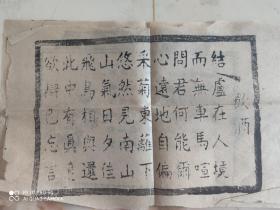 飲酒
結廬在人境
而無車馬喧
問君何能爾
心遠地自偏
采菊東籬下
悠然見南山
山氣日夕佳
飛鳥相與還
此中有真意
欲辨已忘言